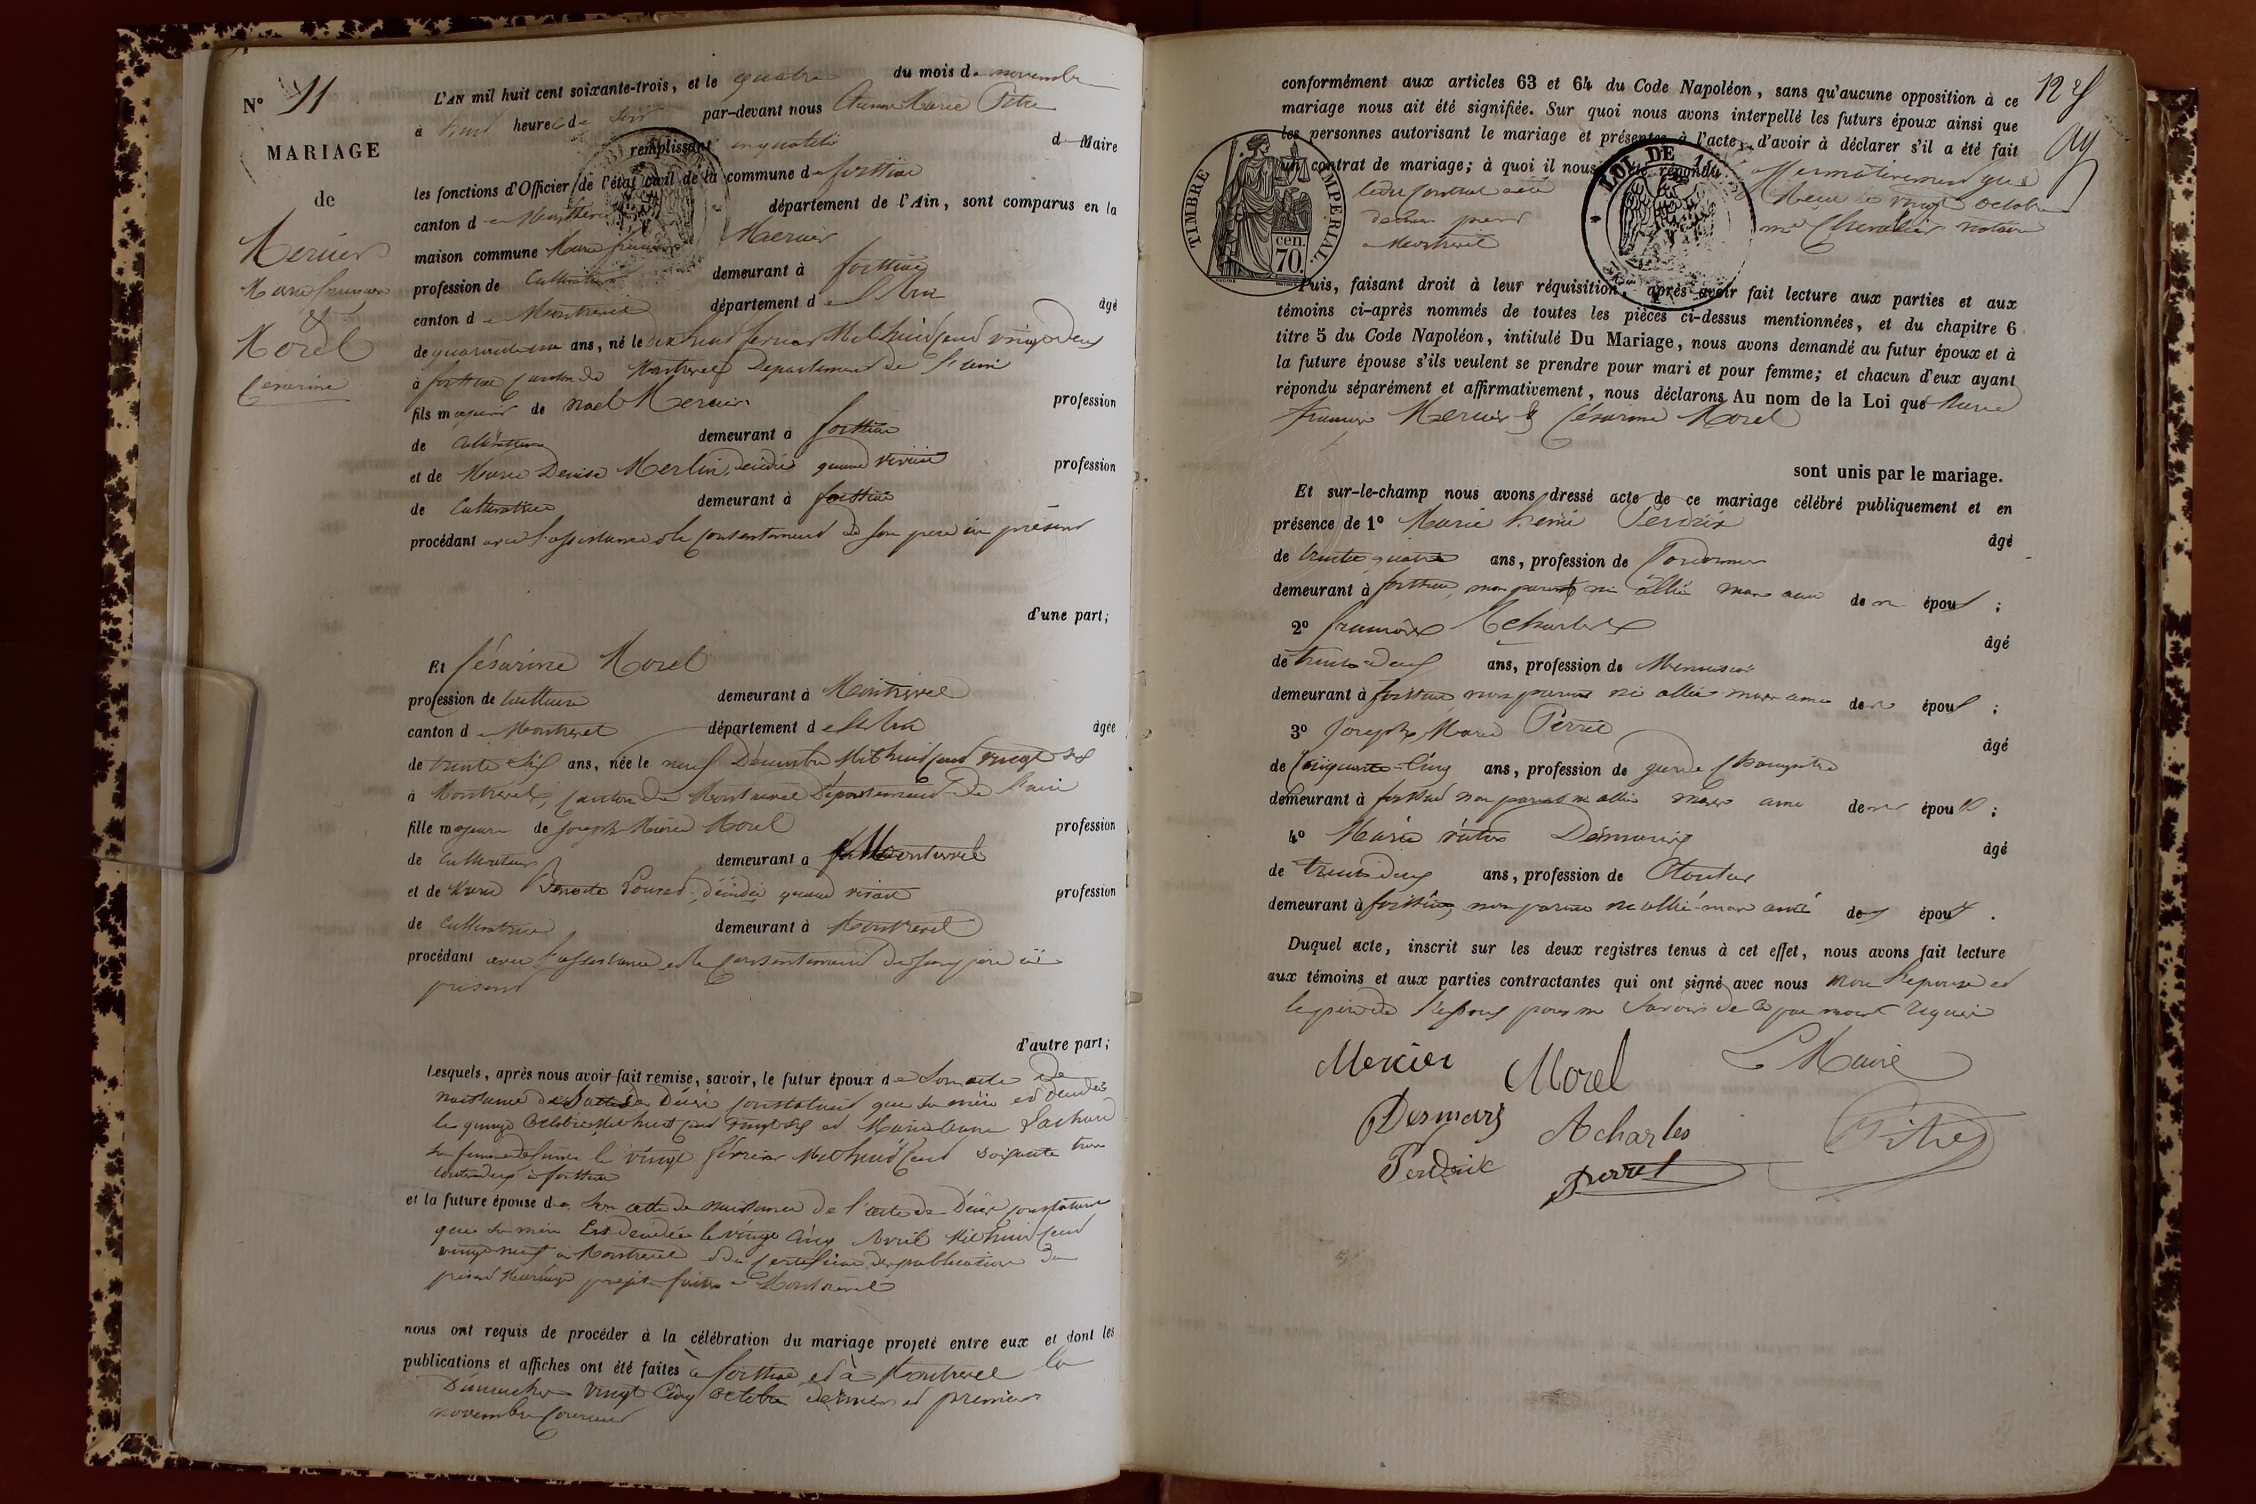 N° 11
MARIAGE
de
Mercier
Marie françois
et
Morel
Césarine
L'AN mil huit cent soixante-trois, et le quatre du mois de novembre
à heure de soir par-devant nous Marie Pitre
remplissant en qualité de Maire
les fonctions d'Officier de l'état civil de la commune de foissiat
canton de Montrevel département de l'Ain, sont comparus en la
maison commune Marie françois Mercier
profession de Cultivateur demeurant à foissiat
canton de Montrevel département de l'Ain âgé
de quarante un ans, né le dix huit fevrier Mil huit cent vingt deux
à foissiat canton de Montrevel Departement de l'ain
fils majeur de Noel Mercier profession
de Cultivateur demeurant à foissiat
et de Marie Denise Merlin, décédée quand vivait profession
de Cultivatrice demeurant à foissiat
procédant avec l'assistance et le consentement de son pere ici présent
d'une part;
Et Césarine Morel
profession de demeurant à Montrevel
canton de Montrevel département de l'Ain âgée
de trente six ans, née le neuf Décembre Mil huit cent vingt six
à Montrevel, canton de Montrevel Département de l'ain
fille majeure de Joseph Marie Morel profession
de Cultivateur demeurant à Montrevel
et de Marie Benoite décédée quand vivait profession
de Cultivatrice demeurant à Montrevel
procédant avec l'assistance et le consentement de son père ici
présent
d'autre part;
Lesquels, après nous avoir fait remise, savoir, le futur époux de son acte de
naissance de l'acte de Décès constatant que sa mère est décédée
le quinze Octobre Mil huit cent vingt six et Marie Anne
sa femme le vingt février Mil huit cent soixante trois
à foissiat
et la future épouse de son acte de naissance de l'acte de Décès constatant
que sa mère Est décédée le vingt Cinq Avril Mil huit cent
vingt neuf à Montrevel et du certificat de publication du
présent Mariage projeté faite à Montrevel
nous ont requis de procéder à la célébration du mariage projeté entre eux et dont les
publications et affiches ont été faites à foissiat et à Montrevel les
Dimanches vingt Cinq Octobre dernier et premier
novembre courant
12 
conformément aux articles 63 et 64 du Code Napoléon, sans qu'aucune opposition à ce
mariage nous ait été signifiée. Sur quoi nous avons interpellé les futurs époux ainsi que
les personnes autorisant le mariage et présentes à l'acte, d'avoir à déclarer s'il a été fait
un contrat de mariage; à quoi il nous a été répondu affirmativement que
ledit contrat a été Recu le vingt octobre
dernier par Me Chevalier notaire
à Montrevel
TIMBRE IMPÉRIAL
70 cen.
LOI DE
Puis, faisant droit à leur réquisition, après avoir fait lecture aux parties et aux
témoins ci-après nommés de toutes les pièces ci-dessus mentionnées, et du chapitre 6
titre 5 du Code Napoléon, intitulé Du Mariage, nous avons demandé au futur époux et à
la future épouse s'ils veulent se prendre pour mari et pour femme; et chacun d'eux ayant
répondu séparément et affirmativement, nous déclarons Au nom de la Loi que Marie
françois Mercier & Césarine Morel
sont unis par le mariage.
Et sur-le-champ nous avons dressé acte de ce mariage célébré publiquement et en
présence de 1° Marie Perdrix âgé
de trente quatre ans, profession de Cordonnier
demeurant à foissiat, non parent ni allié mais ami des époux;
2° françois Acharles âgé
de trente deux ans, profession de Menuisier
demeurant à foissiat non parent ni allié mais ami des époux;
3° Joseph Marie Perret âgé
de Cinquante-Cinq ans, profession de garde Champêtre
demeurant à foissiat non parent ni allié mais ami des époux;
4° Marie Victor Desmaris âgé
de trente deux ans, profession de
demeurant à foissiat, non parent ni allié mais ami des époux.
Duquel acte, inscrit sur les deux registres tenus à cet effet, nous avons fait lecture
aux témoins et aux parties contractantes qui ont signé avec nous non l'epouse et
le père de l'époux pour ne savoir de ce par nous requis
Mercier Morel Le Maire
Desmaris Acharles Pitre
Perdrix Perret